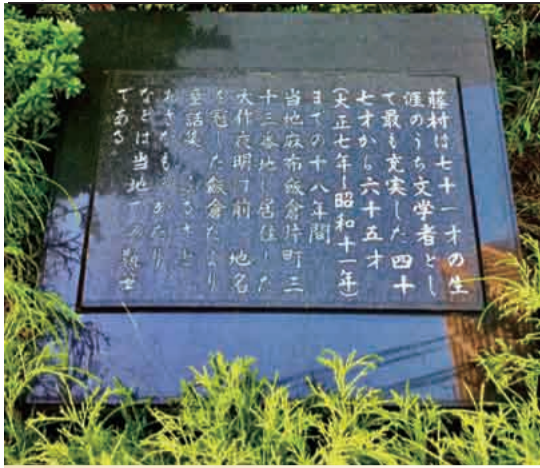 藤村は七十一才の生
涯のうち文学者とし
て最も充実した 四十
七才から六十五才
(大正七年–昭和十一年)
までの十八年間
当地麻布飯倉片町三
十三番地に居住した
大作夜明け前 地名
を冠した飯倉だより
童話集 ふるさと
おさなものがたり
などは当地での執筆
である